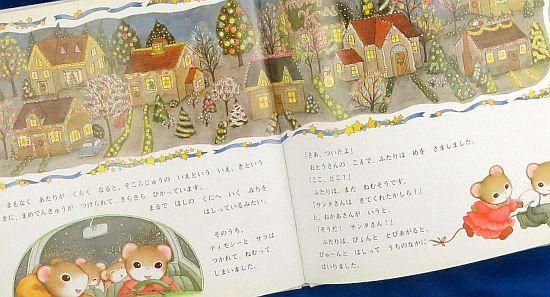 まもなく あたりが くらく なると、そこらじゅうの いえという いえ、きという
きに、まめでんきゅうが つけられて、きらきら ひかっています。
まるで ほしの くにへ いく みちを
はしっているみたい。
そのうち、
ティモシーと サラは
つかれて、ねむって
しまいました。
「さあ、ついたよ」
おとうさんの こえで、ふたりは めを さましました。
「ここ、どこ?」
ふたりは、まだ ねむそうです。
「サンタさんは きてくれたかしら?」
と、おかあさんが いうと、
「そうだ! サンタさん!」
ふたりは、ぴょんと とびあがると、
ぴゅーんと はしって うちのなかに
はいりました。